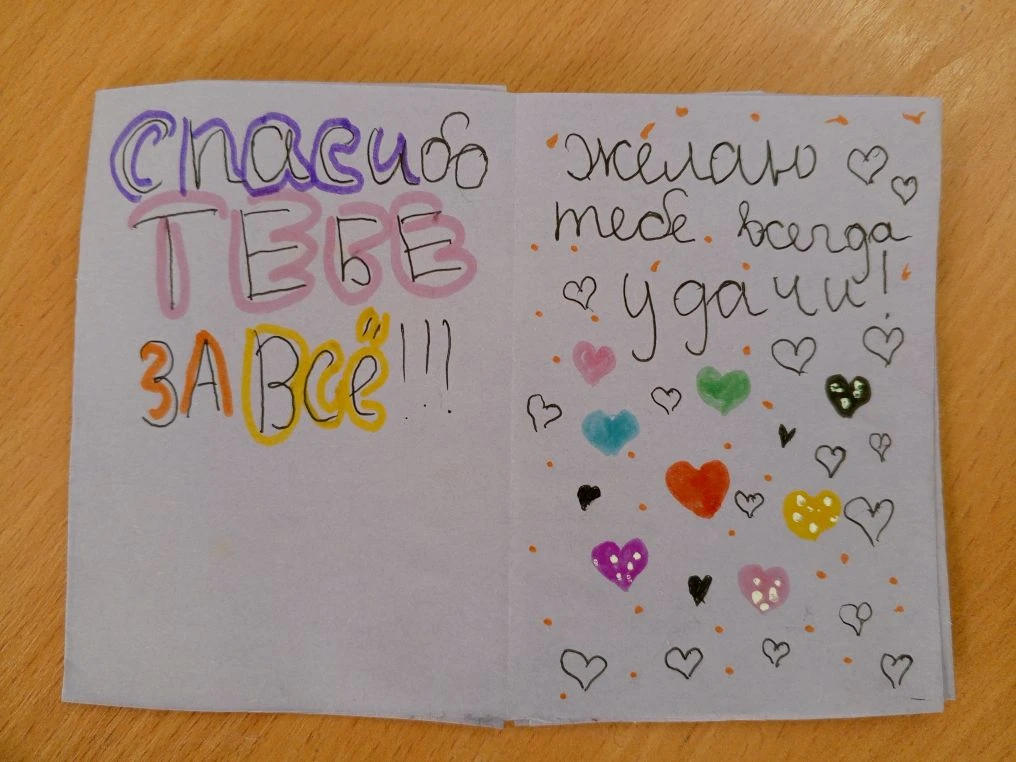 Спасибо
ТЕБЕ
ЗА Всё!!!
Желаю
тебе всегда
удачи!